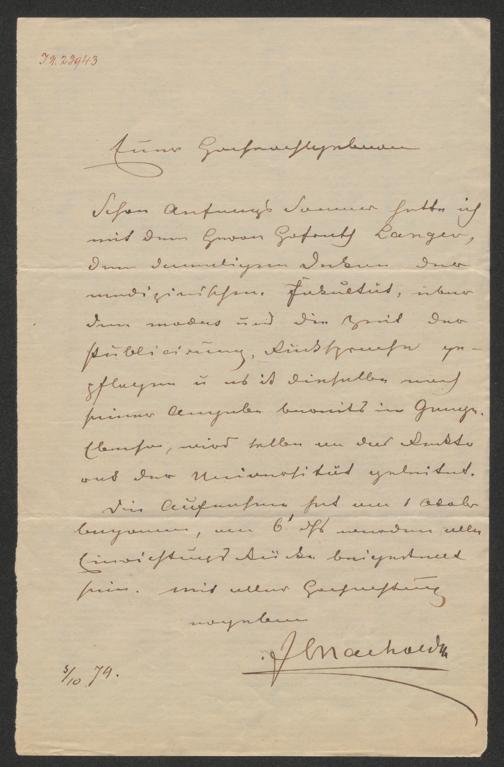 I.N. 23943
Euer Hochwohlgeboren
Schon Anfangs Sommer hatte ich
mit dem Herrn Hofrath Langer,
dem damaligen Dekan der
medizinischen Fakultät, über
den modus und die Zeit der
Publicirung, Rücksprache ge-
pflogen u es ist dieselbe nach
seiner Angabe bereits im Gange.
Ebenso, wird selbe an das Rekto
rat der Universität geleitet.
Die Aufnahme hat am 1 Octob
begonnen, am 6t dfs werden alle
Einrichtungsstücke beigestellt
sein. Mit aller Hochachtung
ergeben
5/10 79.